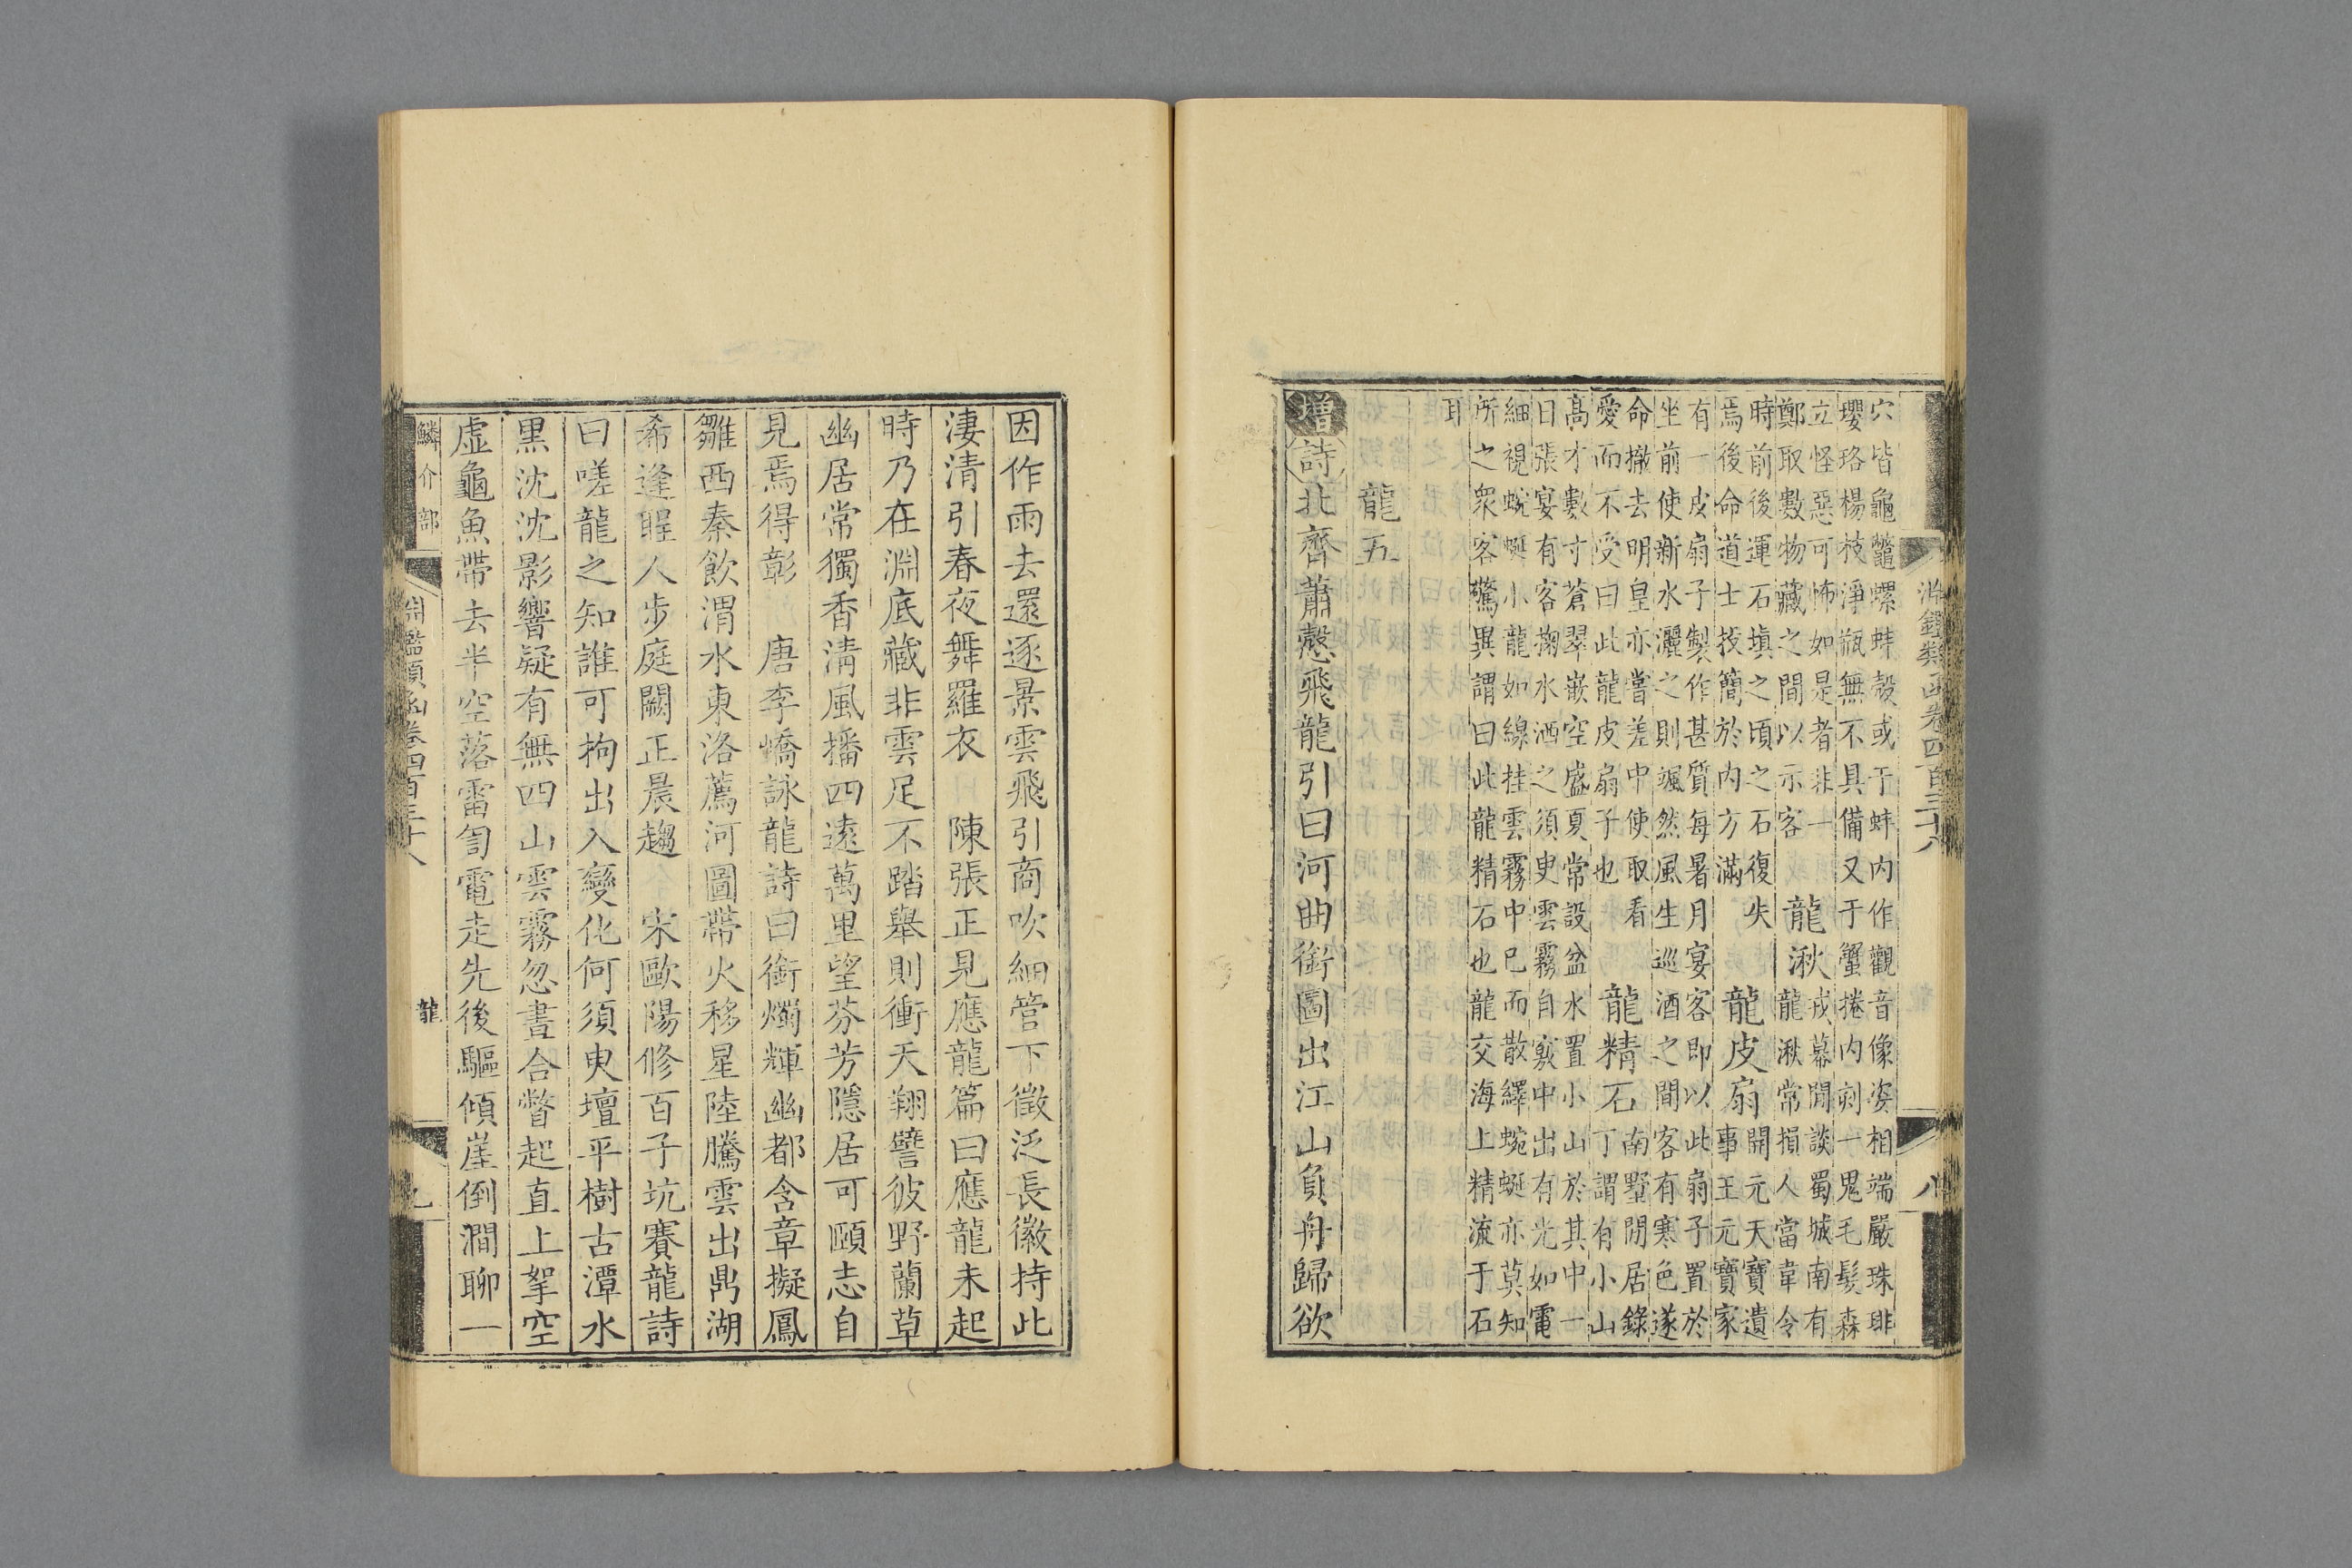 淵鑑類函卷四百三十八
八
穴皆龜鼈螺蚌殼或于蚌内作觀音像姿相端嚴珠琲
瓔珞楊枝淨瓶無不具備又于蟹捲内刻一鬼毛髮森
立怪惡可怖如是者非一
鄭取數物藏之間以示客
龍湫
戎幕閒談蜀城南有
龍湫常損人當韋令
時前後運石填之頃之石復失
焉後命道士投簡於内方滿
龍皮扇
開元天寶遺
事王元寶家
有一皮扇子製作甚質每暑月宴客即以此扇子置於
坐前使新水灑之則颯然風生巡酒之間客有寒色遂
命撤去明皇亦嘗差中使取看
愛而不受曰此龍皮扇子也
龍精石
南墅閒居錄
丁謂有小山
高才數寸蒼翠嵌空盛夏常設盆水置小山於其中一
日張宴有客掬水洒之須臾雲霧自竅中出有光如電
細視蜿蜒小龍如線挂雲霧中已而散繹蜿蜒亦莫知
所之衆客驚異謂曰此龍精石也龍交海上精流于石
耳
龍五
增詩北齊蕭慤飛龍引曰河曲銜圖出江山負舟歸欲
因作雨去還逐景雲飛引商吹細管下徵泛長徽持此
淒清引春夜舞羅衣 陳張正見應龍篇曰應龍未起
時乃在淵底藏非雲足不踏舉則衝天翔譬彼野蘭草
幽居常獨香清風播四遠萬里望芬芳隱居可頤志自
見焉得彰 唐李嶠詠龍詩曰銜燭輝幽都含章擬鳳
雛西秦飲渭水東洛薦河圖帶火移星陸騰雲出鼎湖
希逢聖人步庭闕正晨趨 宋歐陽修百子坑賽龍詩
曰嗟龍之知誰可拘出入變化何須臾壇平樹古潭水
黒沈沈影響疑有無四山雲霧忽晝合瞥起直上拏空
虛龜魚帶去半空落雷訇電走先後驅傾崖倒澗聊一
鱗介部
淵鑑類函卷四百三十八
龍
九